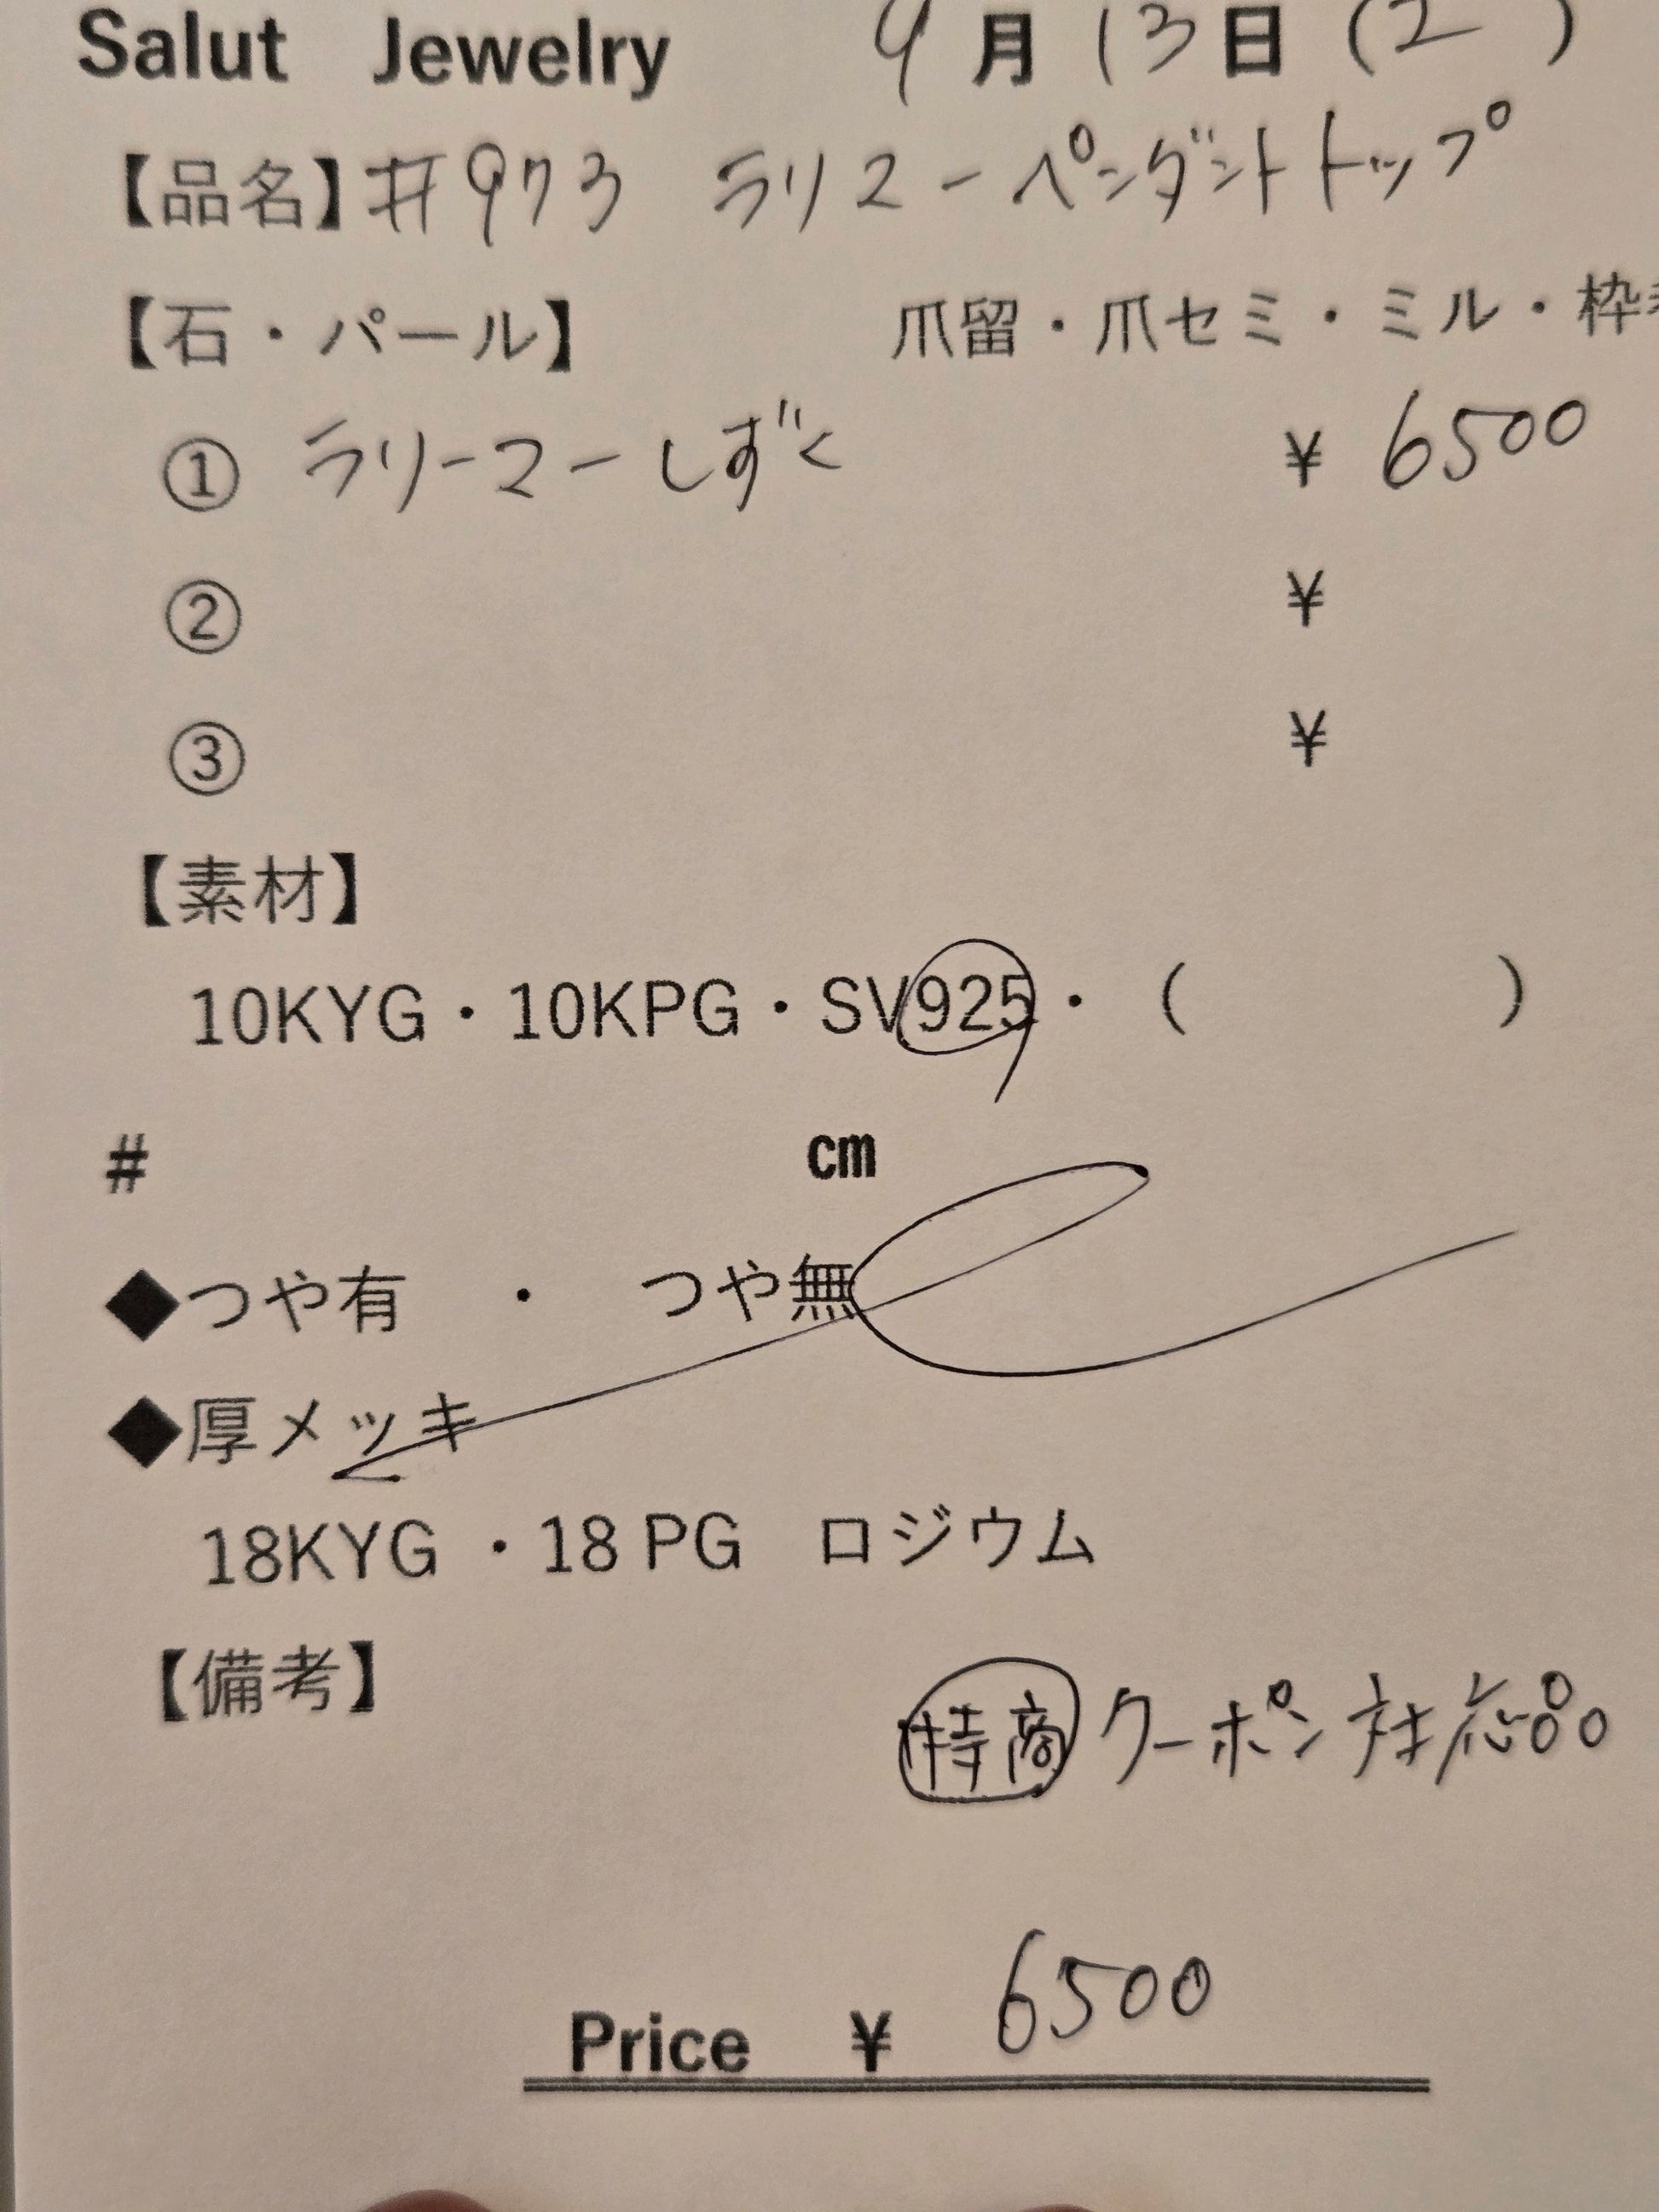 Salut Jewelry 9月13日(2 )
【品名】#973 ラリマーペンダントトップ
【石・パール】 爪留・爪セミ・ミル・枠
① ラリーマーしずく ¥6500
② ¥
③ ¥
【素材】
10KYG・10KPG・SV925・( )
# cm
◆つや有 ・ つや無
◆厚メッキ
18KYG ・18 PG ロジウム
【備考】
特商 クーポン対応品
Price ¥ 6500